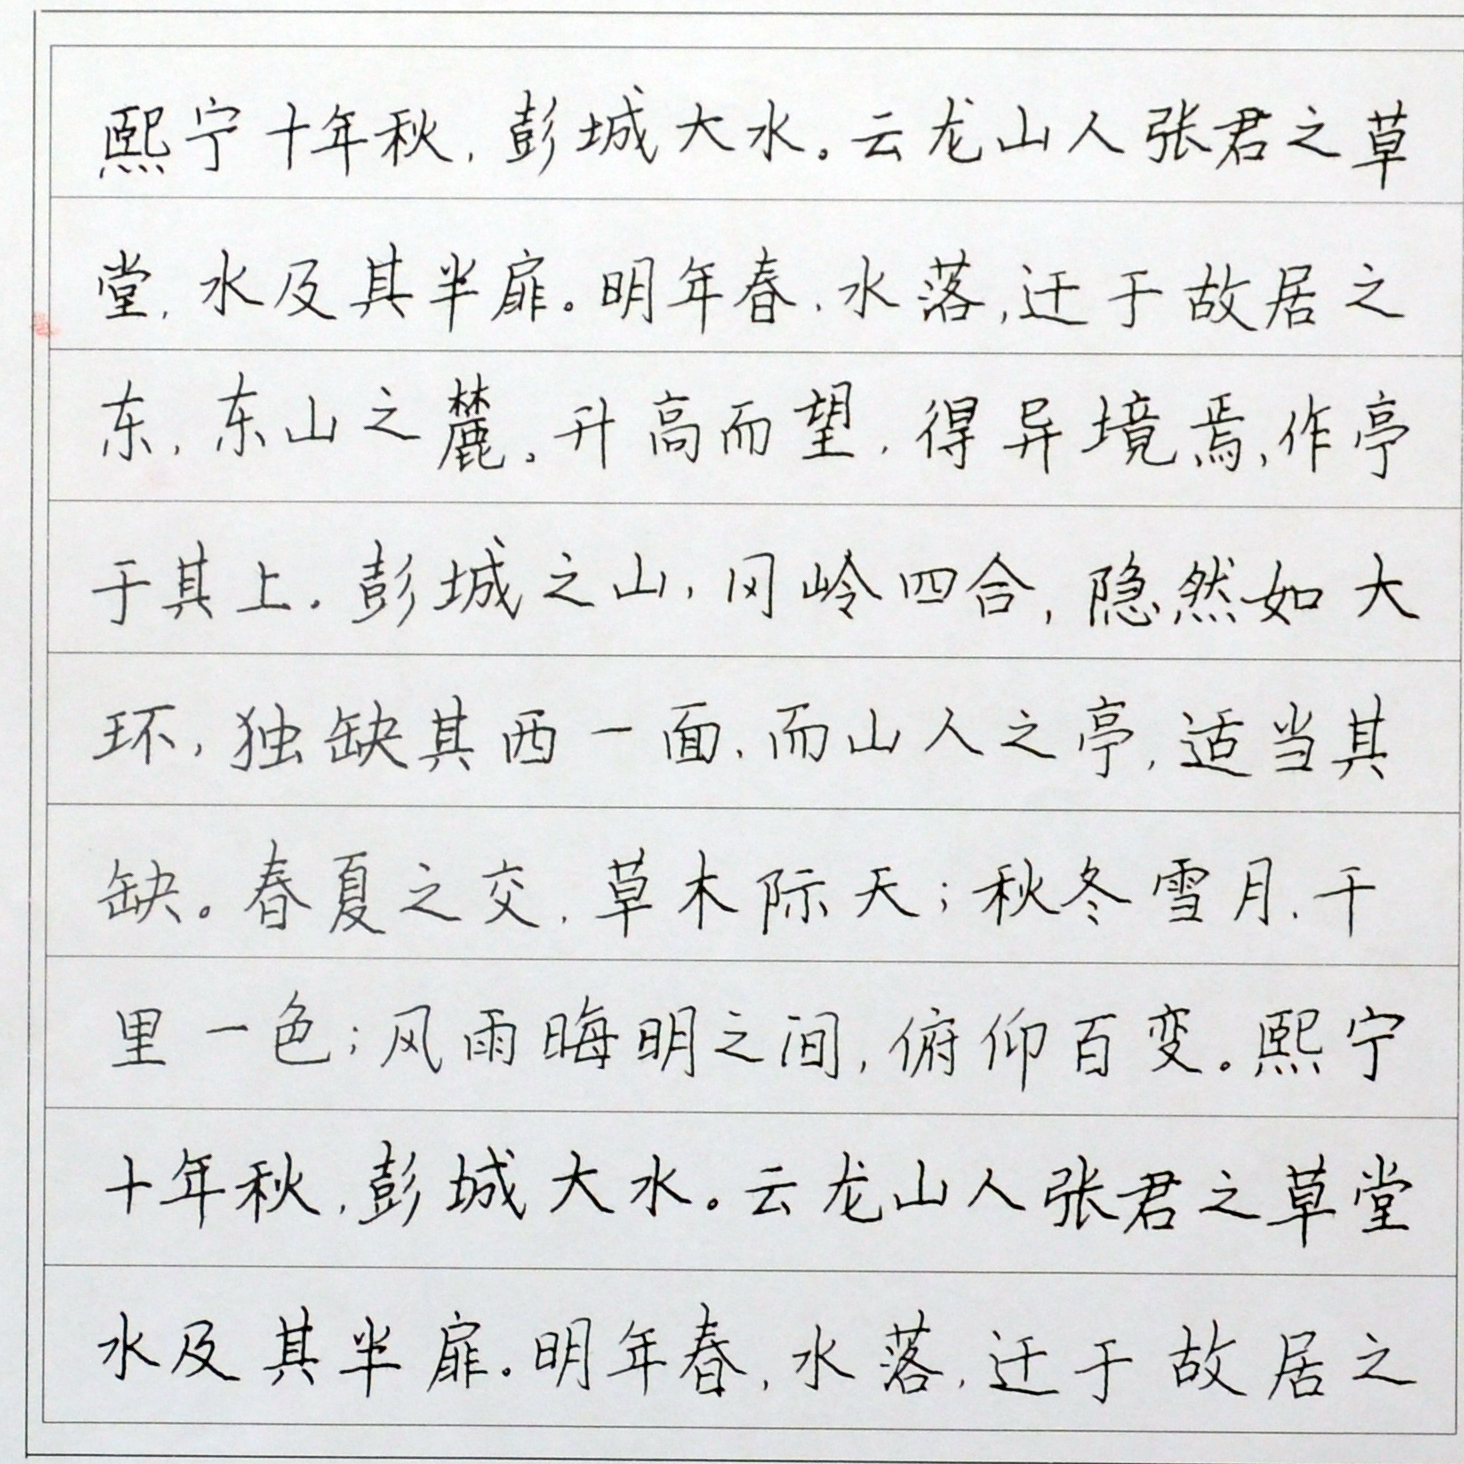 熙宁十年秋，彭城大水。云龙山人张君之草
堂，水及其半扉。明年春，水落，迁于故居之
东，东山之麓。升高而望，得异境焉，作亭
于其上。彭城之山，冈岭四合，隐然如大
环，独缺其西一面，而山人之亭，适当其
缺。春夏之交，草木际天；秋冬雪月，千
里一色；风雨晦明之间，俯仰百变。熙宁
十年秋，彭城大水。云龙山人张君之草堂
水及其半扉。明年春，水落，迁于故居之